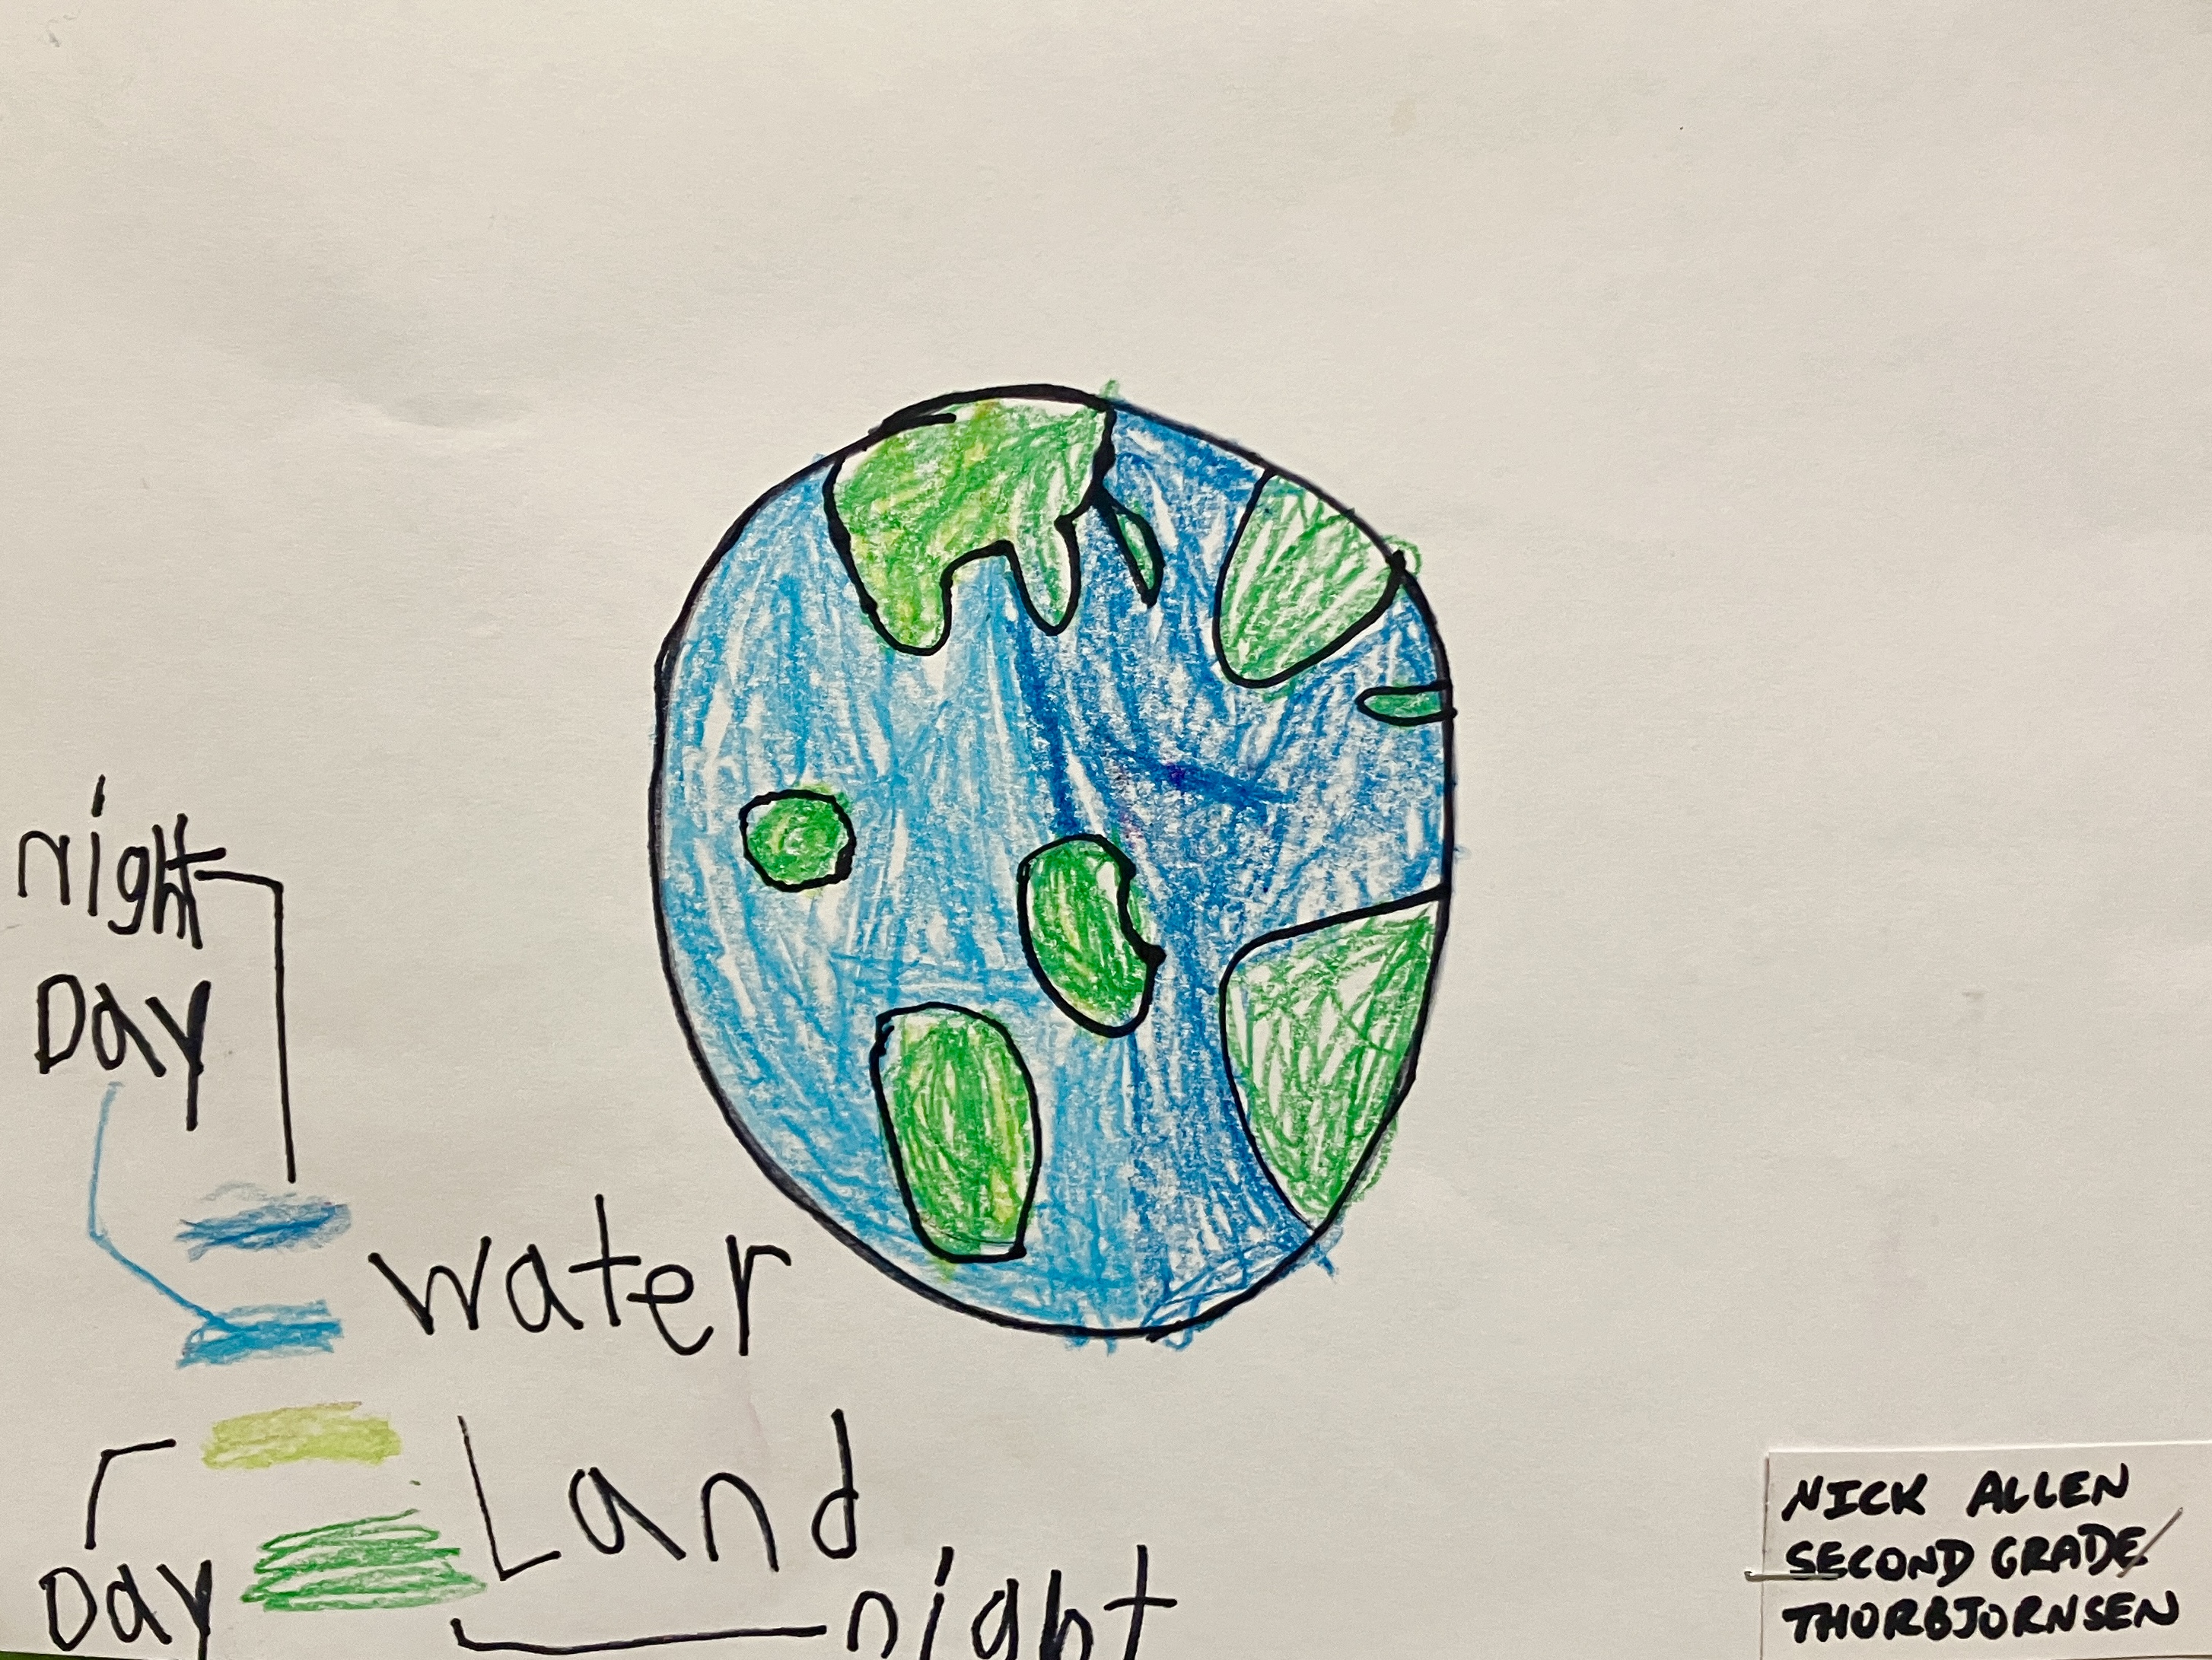 night
Day
water
Land
Day
night
NICK ALLEN
SECOND GRADE/
THORBJORNSEN